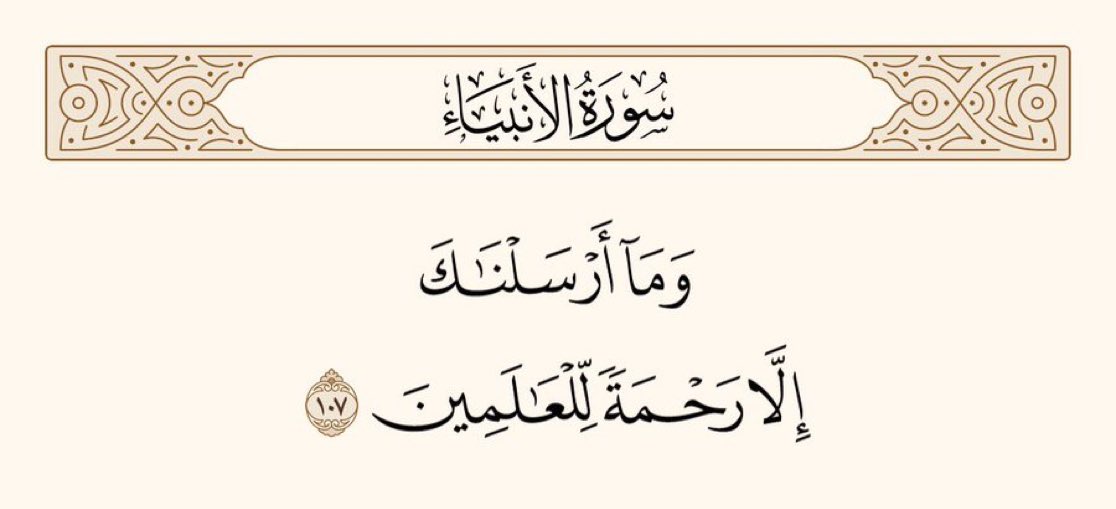 سُورَةُ الأَنبِيَاءِ
وَمَآ أَرْسَلْنَـٰكَ
إِلَّا رَحْمَةً لِّلْعَـٰلَمِينَ ١٠٧